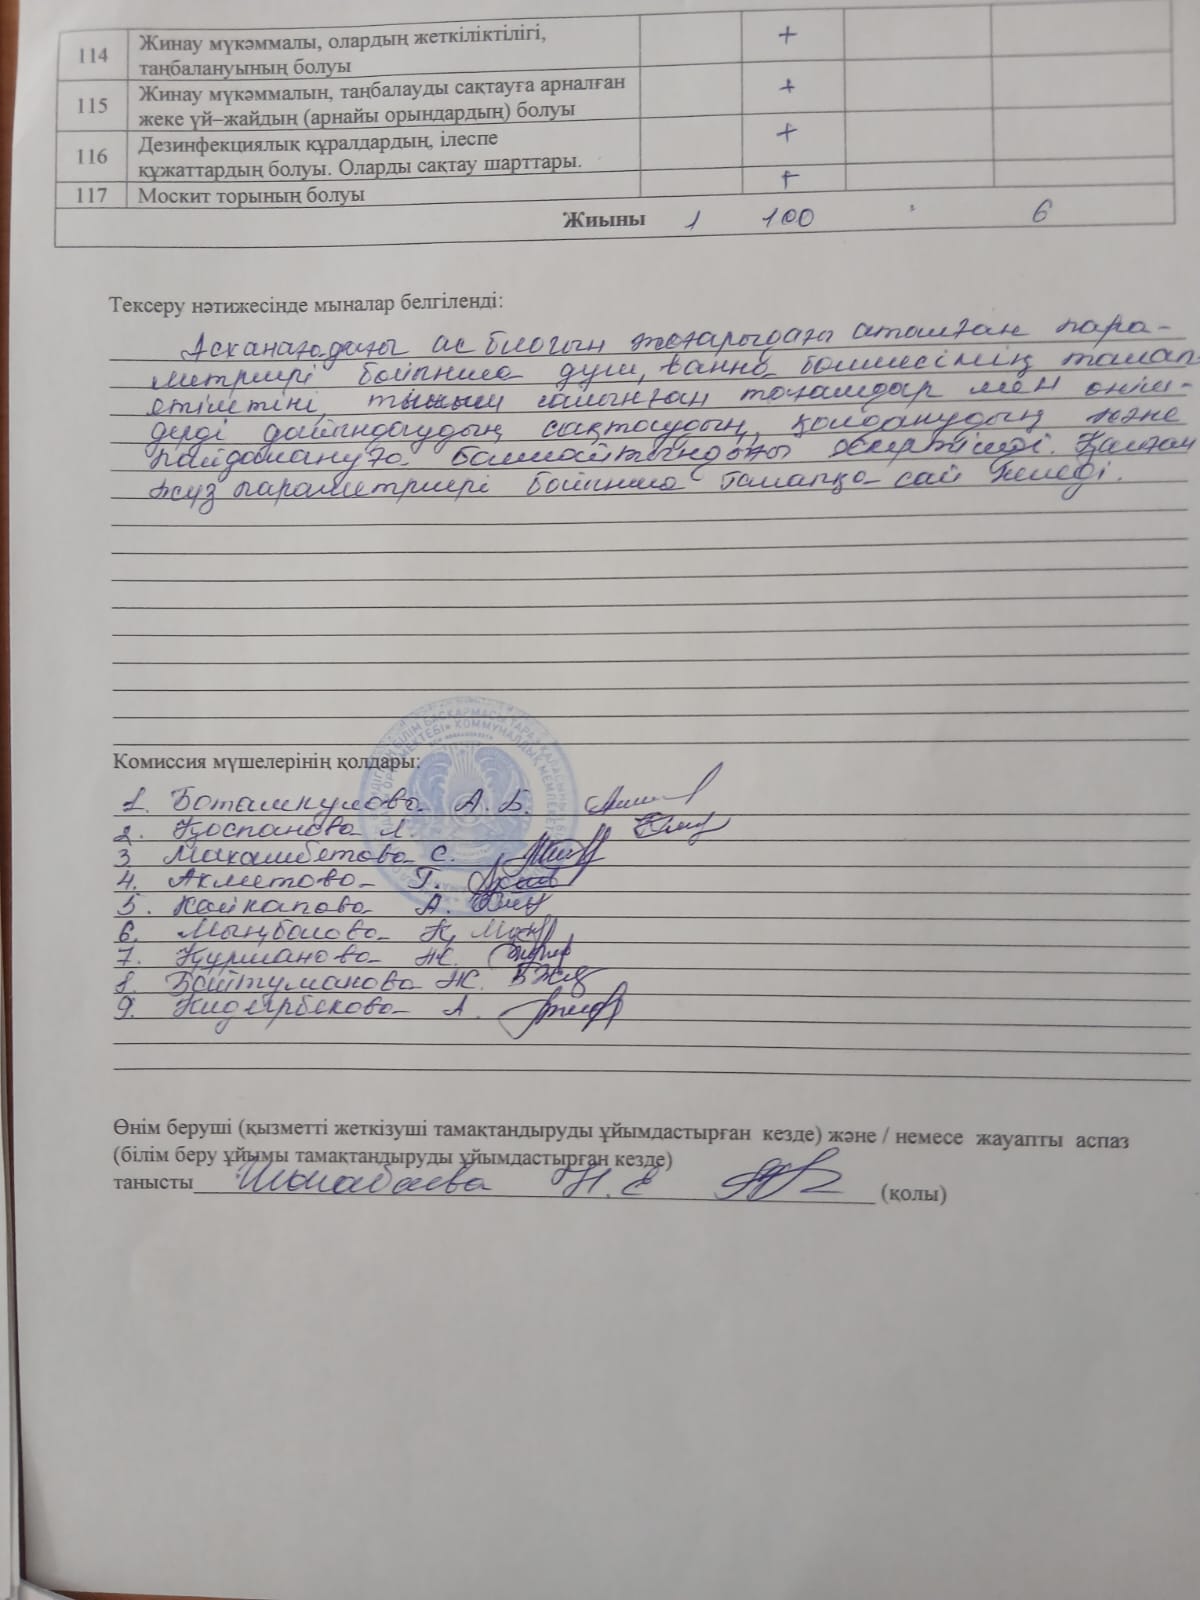 114 Жинау мүкәммалы, олардың жеткіліктілігі, +
таңбалануының болуы
115 Жинау мүкәммалын, таңбалауды сақтауға арналған +
жеке үй–жайдың (арнайы орындардың) болуы
116 Дезинфекциялық құралдардың, ілеспе +
құжаттардың болуы. Оларды сақтау шарттары.
117 Москит торының болуы +
Жиыны 1 100 6
Тексеру нәтижесінде мыналар белгіленді:
ас блогын жоғарыдағы аталған пара-
метрлері бойынша душ, ванна бөлмесінің талап
етілетіні, тыйым салынған тағамдар мен өнім-
дерді дайындаудың, сақтаудың, қолданудың және
пайдалануға болмайтындығы ескертілді. Қалған
жүз параметрлері бойынша талапқа сай келеді.
Комиссия мүшелерінің қолдары:
1. А. Б.
2. Қоспанова Л.
3. Махамбетова С.
4. Ахметова Г.
5. Кайкапова А.
6. Мыңбаева Қ.
7. Құрманова Ж.
8. Байтуманова Ж.
9. Кидирбекова А.
Өнім беруші (қызметті жеткізуші тамақтандыруды ұйымдастырған кезде) және / немесе жауапты аспаз
(білім беру ұйымы тамақтандыруды ұйымдастырған кезде)
танысты Н. Е (қолы)